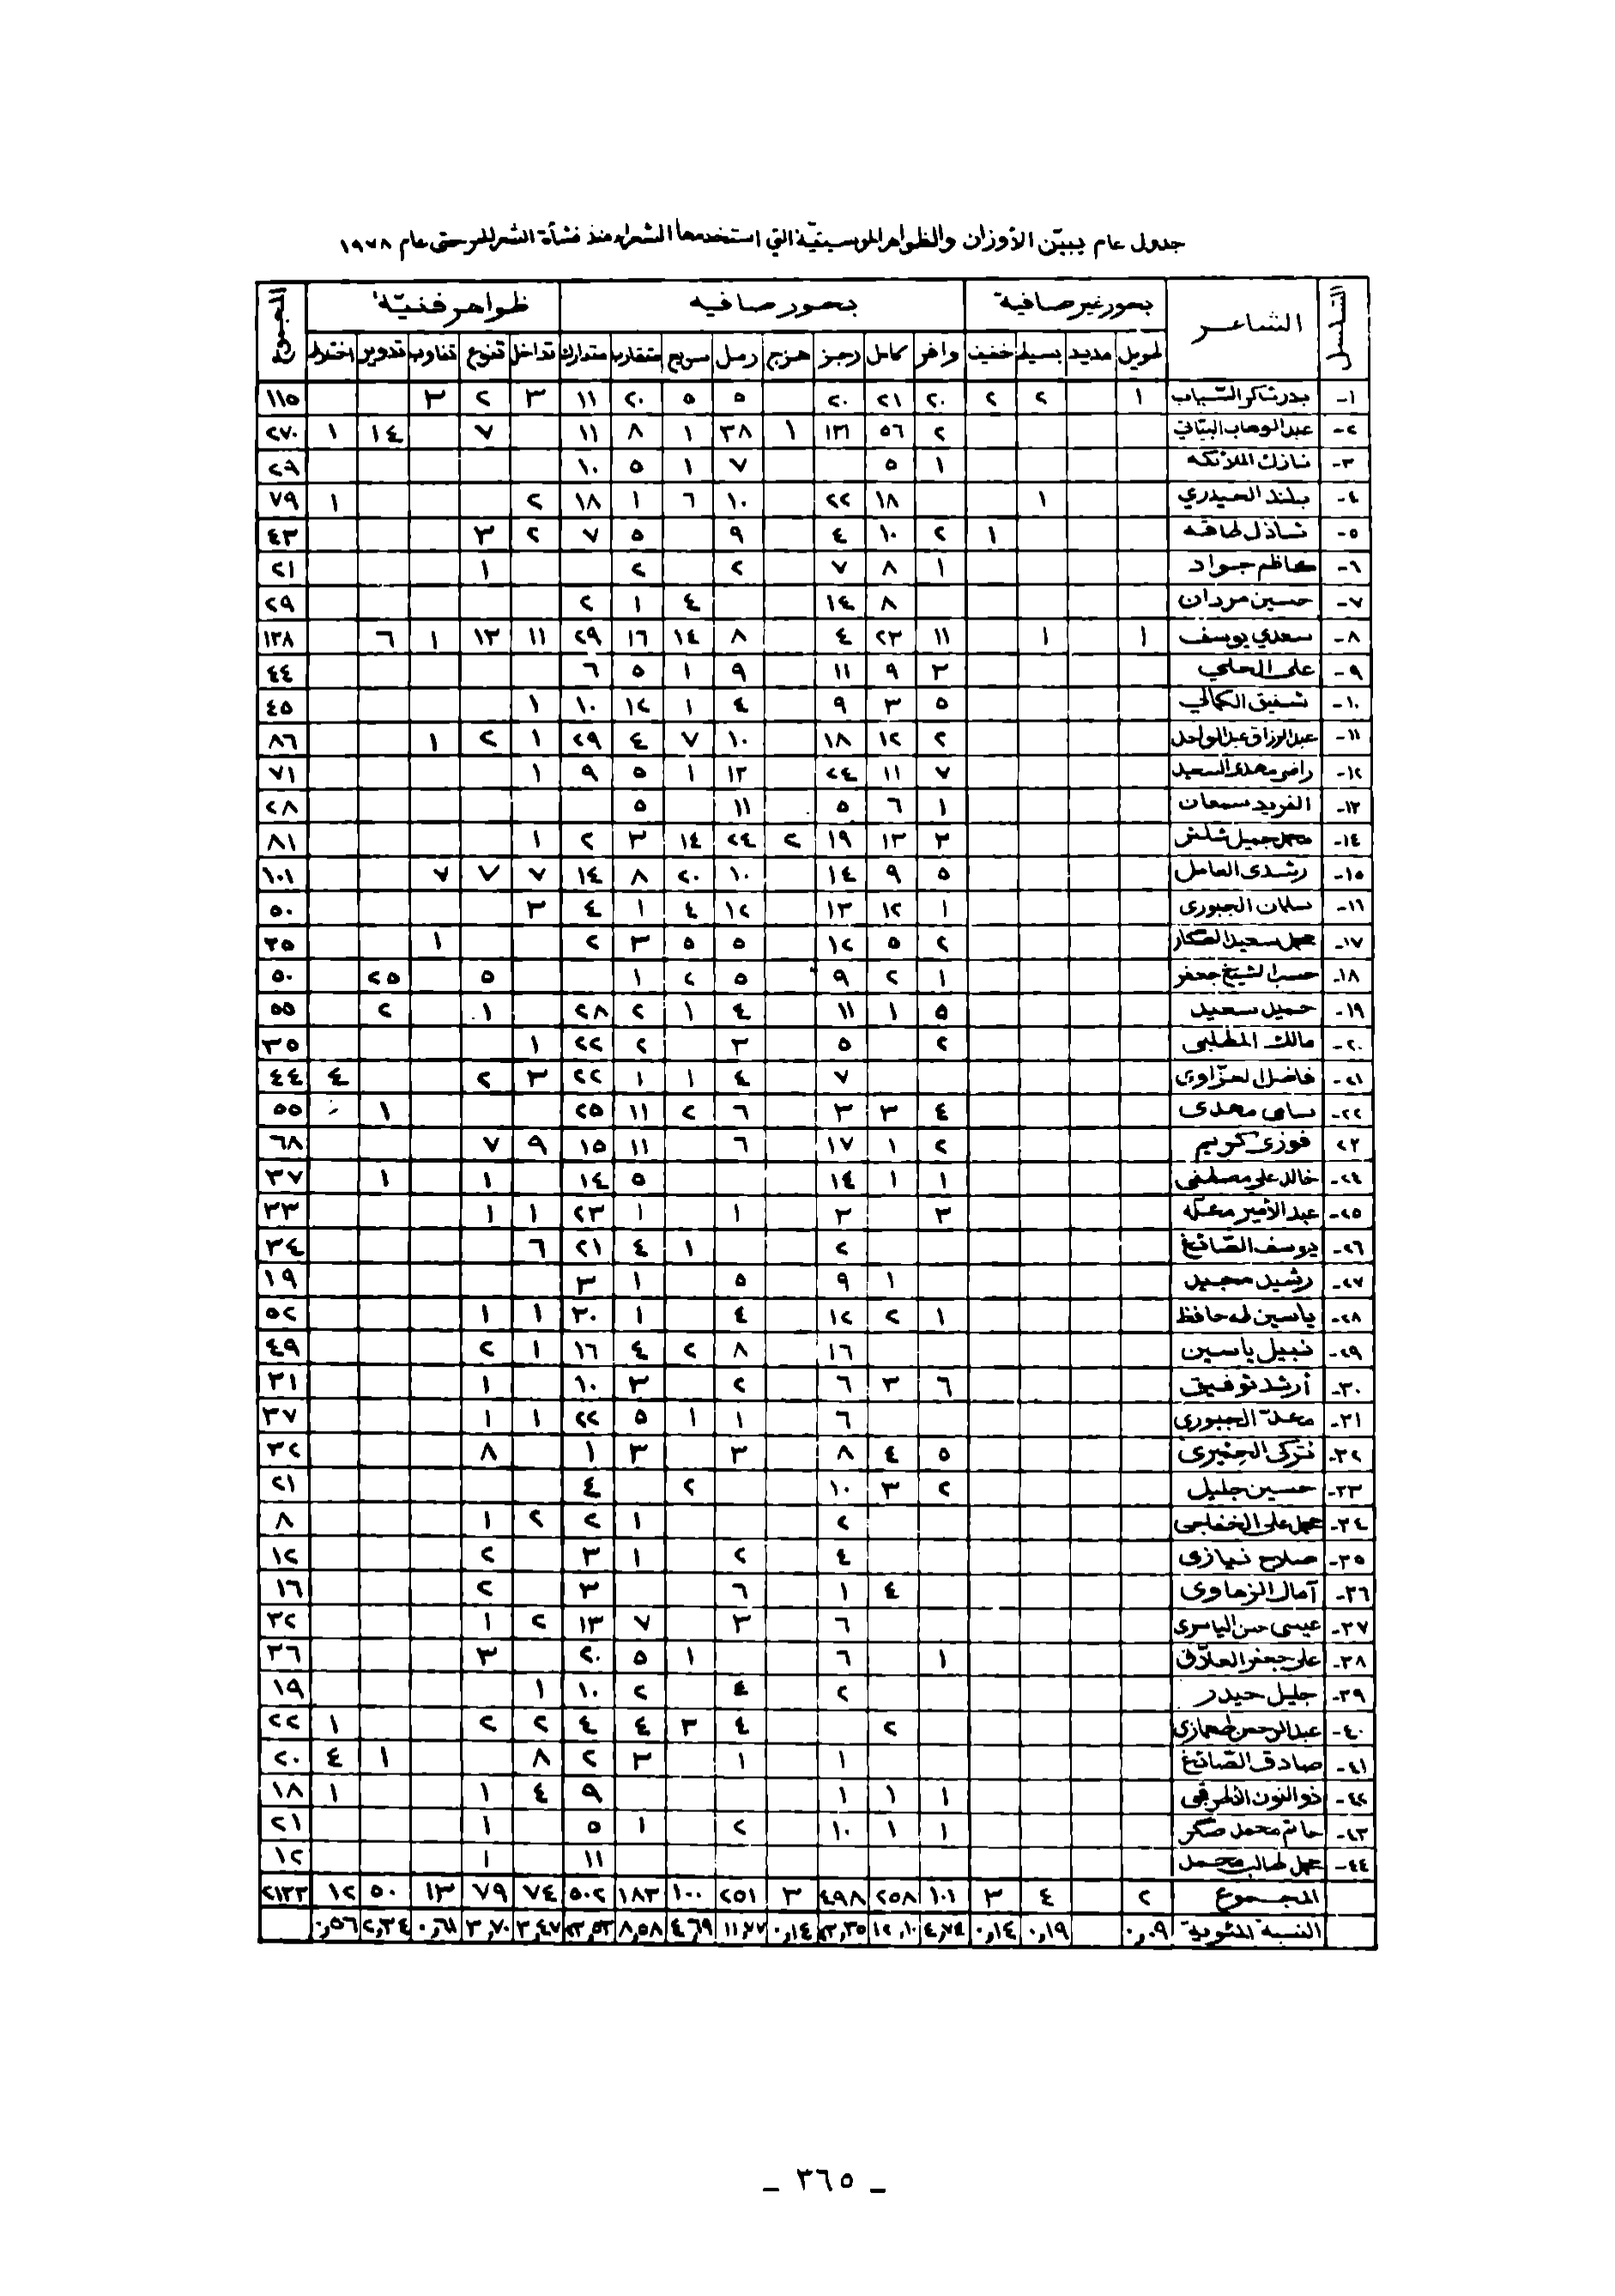 جدول عام يبيّن الأوزان والظواهر الموسيقيّة التي استخدمها الشعراء منذ نشأة الشعر الحر حتى عام ١٩٧٨
التسلسل الشاعر بحور غير صافية بحور صافيه ظواهر فنيّة المجموع
طويل مديد بسيط خفيف وافر كامل رجز هزج رمل سريع متقارب متدارك تداخل تنوع تناوب تدوير اختلاط
١- بدر شاكر السيّاب ١ ٢ ٢ ٢٠ ٢١ ٢٠ ٥ ٥ ٢٠ ١١ ٣ ٢ ٣ ١١٥
٢- عبد الوهاب البيّاتي ٢ ٥٦ ١٣١ ١ ٣٨ ١ ٨ ١١ ٧ ١٤ ١ ٢٧٠
٣- نازك الملائكه ١ ٥ ٧ ١ ٥ ١٠ ٢٩
٤- بلند الحيدري ١ ١٨ ٢٢ ١٠ ٦ ١ ١٨ ٢ ١ ٧٩
٥- شاذل طاقه ١ ٢ ١٠ ٤ ٩ ٥ ٧ ٢ ٣ ٤٣
٦- كاظم جواد ١ ٨ ٧ ٢ ٢ ١ ٢١
٧- حسين مردان ٨ ١٤ ٤ ١ ٢ ٢٩
٨- سعدي يوسف ١ ١ ١١ ٢٣ ٤ ٨ ١٤ ١٦ ٢٩ ١١ ١٣ ١ ٦ ١٣٨
٩- علي الحلي ٣ ٩ ١١ ٩ ١ ٥ ٦ ٤٤
١٠- شفيق الكمالي ٥ ٣ ٩ ٤ ١ ١٢ ١٠ ١ ٤٥
١١- عبد الرزاق عبد الواحد ٢ ١٢ ١٨ ١٠ ٧ ٤ ٢٩ ١ ٢ ١ ٨٦
١٢- راضي مهدي السعيد ٧ ١١ ٢٤ ١٣ ١ ٥ ٩ ١ ٧١
١٣- الفريد سمعان ١ ٦ ٥ ١١ ٥ ٢٨
١٤- محمد جميل شلش ٣ ١٣ ١٩ ٢ ٢٤ ١٤ ٣ ٢ ١ ٨١
١٥- رشدى العامل ٥ ٩ ١٤ ١٠ ٢٠ ٨ ١٤ ٧ ٧ ٧ ١٠١
١٦- سلمان الجبورى ١ ١٢ ١٣ ١٢ ٤ ١ ٤ ٣ ٥٠
١٧- محمد سعيد الصكار ٢ ٥ ١٢ ٥ ٥ ٣ ٢ ١ ٣٥
١٨- حسب الشيخ جعفر ١ ٢ ٩ ٥ ٢ ١ ٥ ٢٥ ٥٠
١٩- حميد سعيد ٥ ١ ١١ ٤ ١ ٢ ٢٨ ١ ٢ ٥٥
٢٠- مالك المطلبي ٢ ٥ ٣ ٢ ٢٢ ١ ٣٥
٢١- فاضل العزّاوى ٧ ٤ ١ ١ ٢٢ ٣ ٢ ٤ ٤٤
٢٢- سامى مهدى ٤ ٣ ٣ ٦ ٢ ١١ ٢٥ ١ ٥٥
٢٣ فوزى كريم ٢ ١ ١٧ ٦ ١١ ١٥ ٩ ٧ ٦٨
٢٤- خالد علي مصطفى ١ ١ ١٤ ٥ ١٤ ١ ١ ٣٧
٢٥- عبد الأمير معله ٣ ٣ ١ ١ ٢٣ ١ ١ ٣٣
٢٦- يوسف الصّائغ ٢ ١ ٤ ٢١ ٦ ٣٤
٢٧- رشيد مجيد ١ ٩ ٥ ١ ٣ ١٩
٢٨- ياسين طه حافظ ١ ٢ ١٢ ٤ ١ ٣٠ ١ ١ ٥٢
٢٩- نبيل ياسين ١٦ ٨ ٢ ٤ ١٦ ١ ٢ ٤٩
٣٠- أرشد توفيق ٦ ٣ ٦ ٢ ٣ ١٠ ١ ٣١
٣١- معدّ الجبورى ٦ ١ ١ ٥ ٢٢ ١ ١ ٣٧
٣٢- تركى الحميرى ٥ ٤ ٨ ٣ ٣ ١ ٨ ٣٢
٣٣- حسين جليل ٢ ٣ ١٠ ٢ ٤ ٢١
٣٤- محمد على الخفاجى ٢ ١ ٢ ٢ ١ ٨
٣٥- صلاح نيازى ٤ ٢ ١ ٣ ٢ ١٢
٣٦- آمال الزهاوى ٤ ١ ٦ ٣ ٢ ١٦
٣٧- عيسى حسن الياسرى ٦ ٣ ٧ ١٣ ٢ ١ ٣٢
٣٨- على جعفر العلاّق ١ ٦ ١ ٥ ٢٠ ٣ ٣٦
٣٩- جليل حيدر ٢ ٤ ٢ ١٠ ١ ١٩
٤٠- عبد الرحمن طهمازى ٢ ٤ ٣ ٤ ٤ ٢ ٢ ١ ٢٢
٤١- صادق الصّائغ ١ ١ ٣ ٢ ٨ ١ ٤ ٢٠
٤٢- ذو النون الأطرقجى ١ ١ ١ ٩ ٤ ١ ١ ١٨
٤٣- حاتم محمد صكر ١ ١ ١٠ ٢ ١ ٥ ١ ٢١
٤٤- محمد طالب محمد ١١ ١ ١٢
المجموع ٢ ٤ ٣ ١٠١ ٢٥٨ ٤٩٨ ٣ ٢٥١ ١٠٠ ١٨٣ ٥٠٢ ٧٤ ٧٩ ١٣ ٥٠ ١٢ ٢١٣٣
النسبة المئوية ٠,٠٩ ٠,١٩ ٠,١٤ ٤,٧٤ ١٢,١٠ ٢٣,٣٥ ٠,١٤ ١١,٧٧ ٤,٦٩ ٨,٥٨ ٢٣,٥٣ ٣,٤٧ ٣,٧٠ ٠,٦١ ٢,٣٤ ٠,٥٦
- ٣٦٥ -